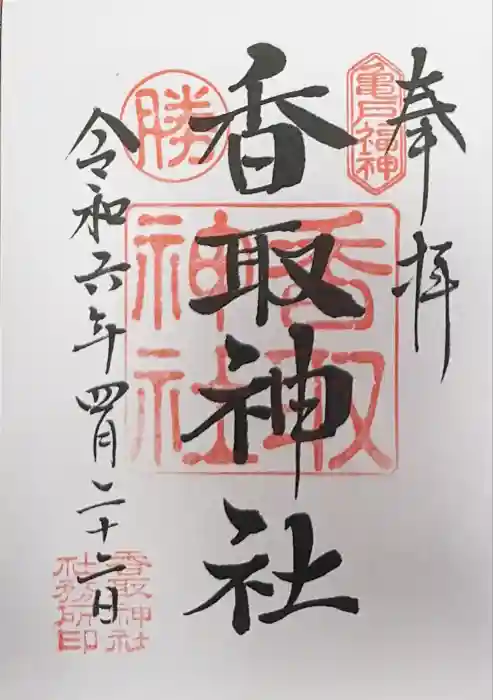 奉拝
亀戸福神
香取神社
香取神社
勝
令和六年四月二十二日
香取神社
社務所印